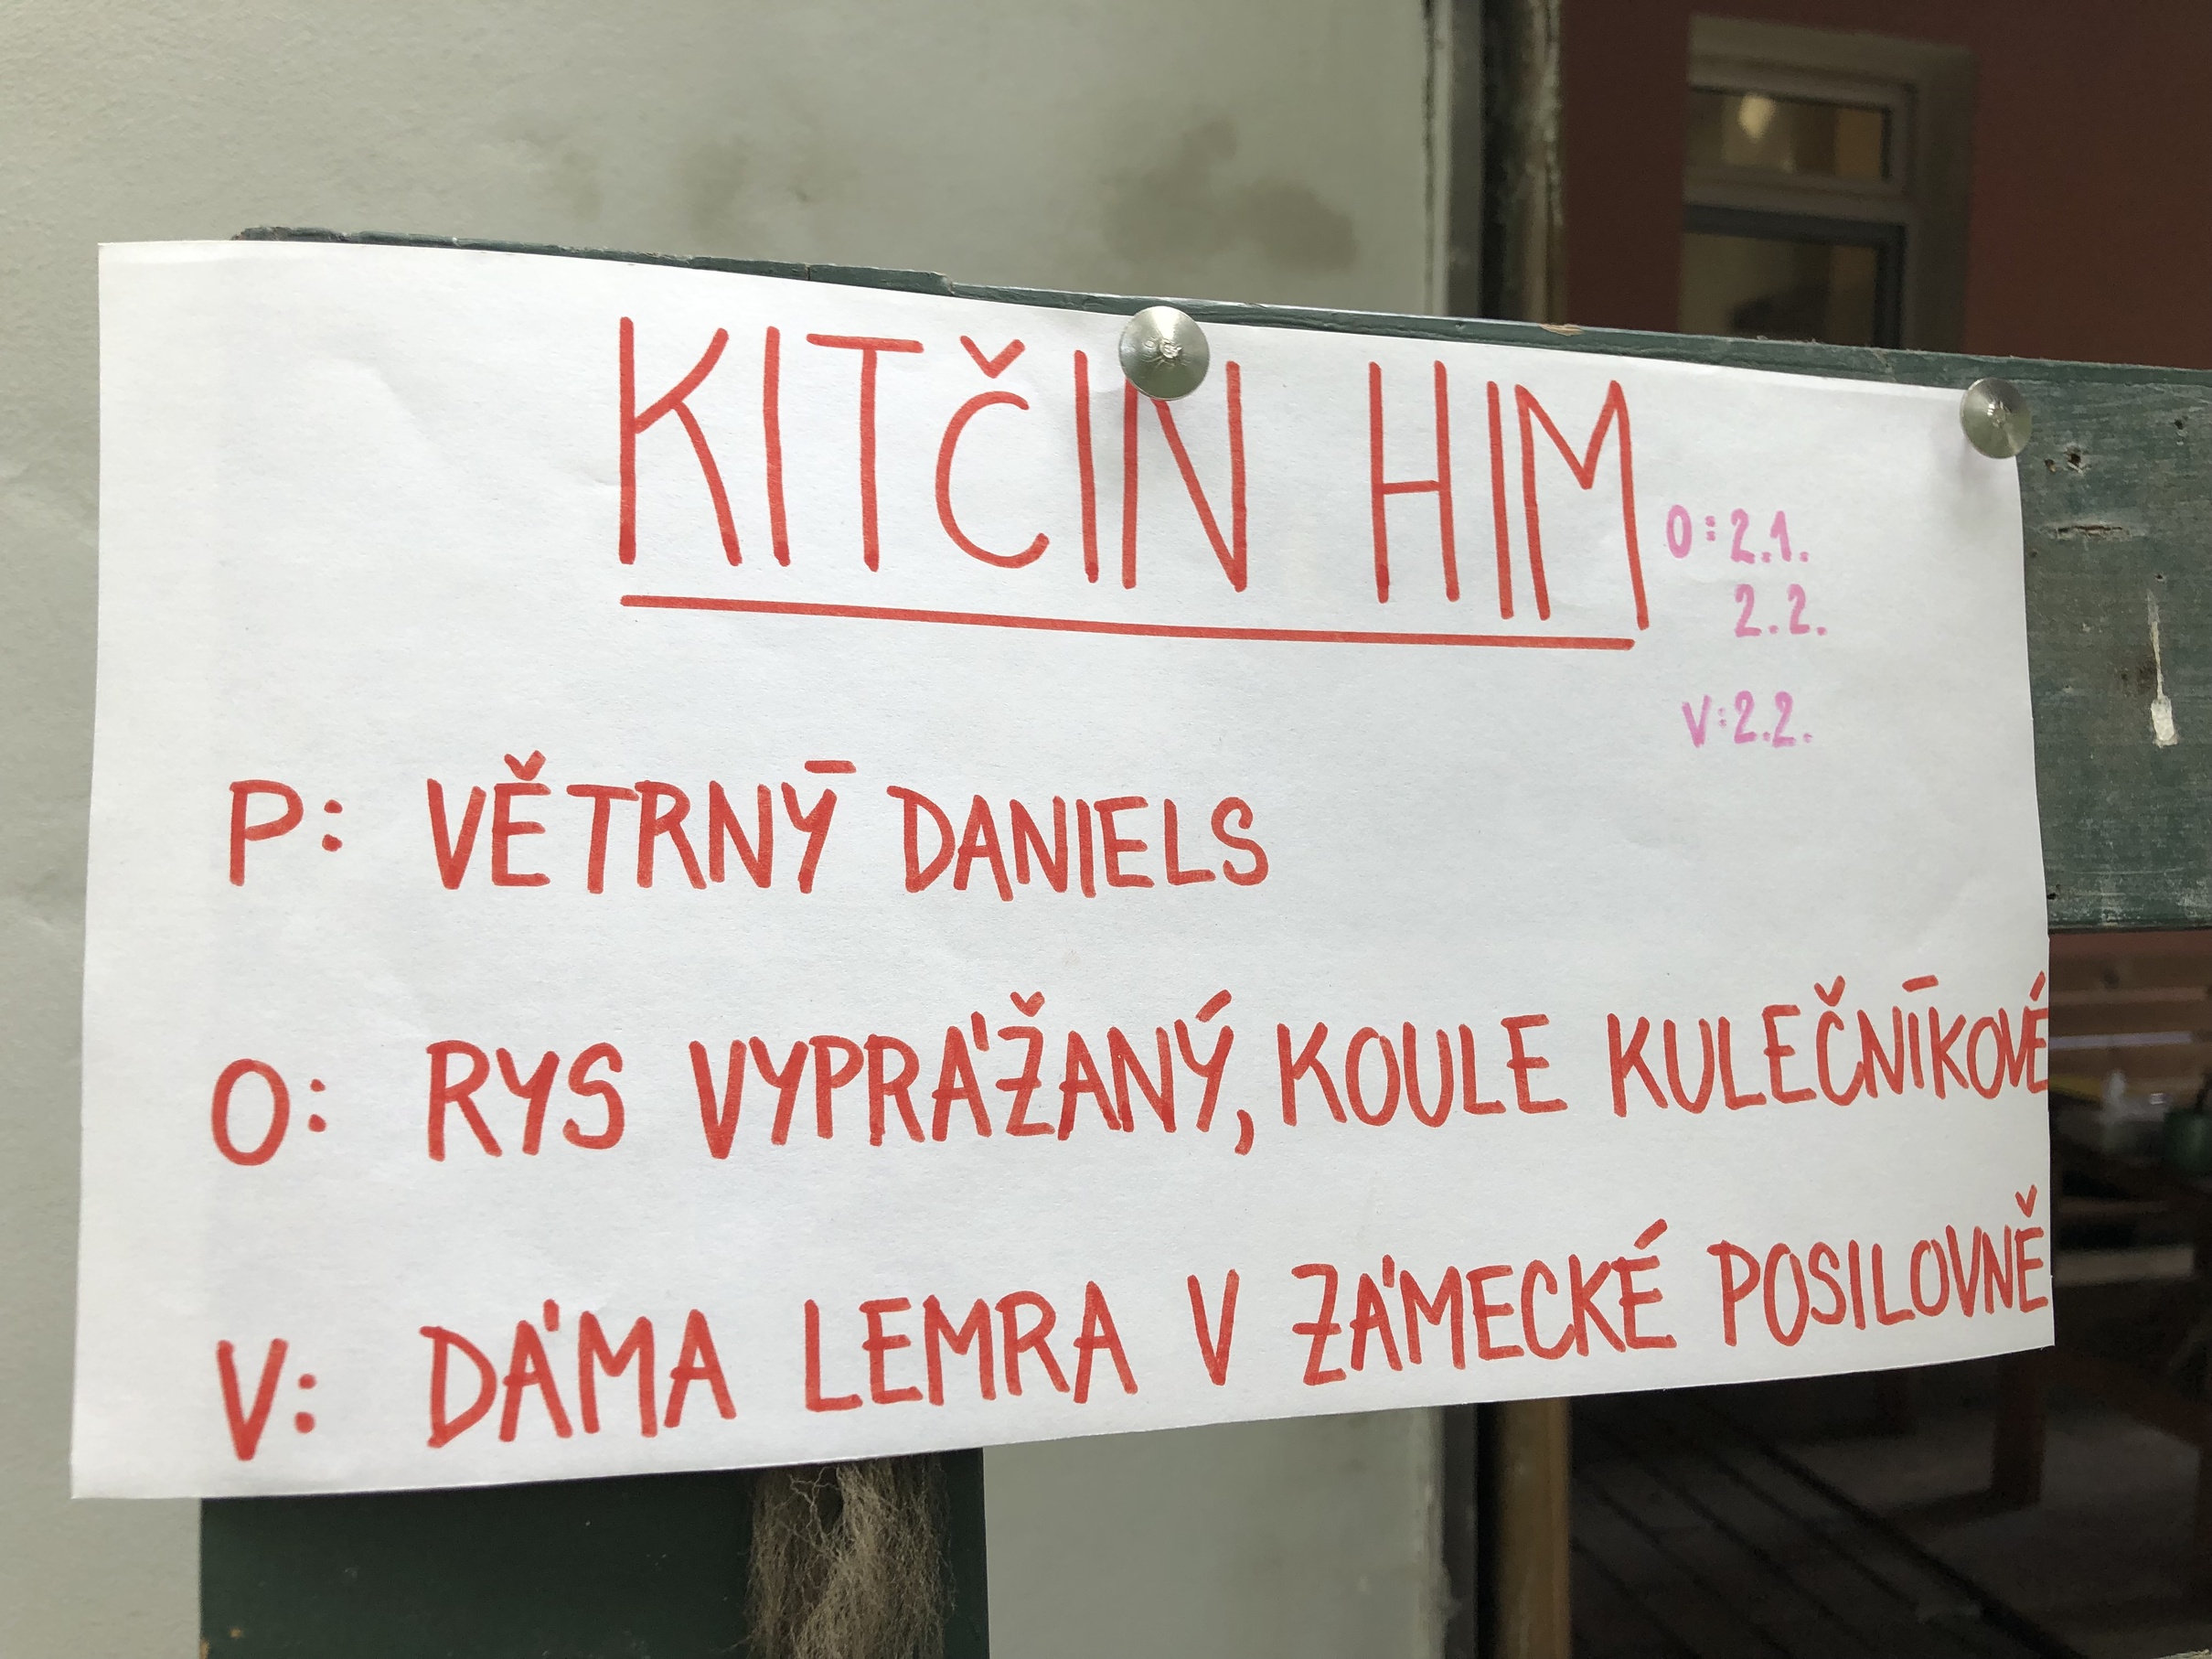 KITČIN HIM
O: 2.1.
2.2.
V: 2.2.
P: VĚTRNÝ DANIELS
O: RYS VYPRÁŽANÝ, KOULE KULEČNÍKOVÉ
V: DÁMA LEMRA V ZÁMECKÉ POSILOVNĚ